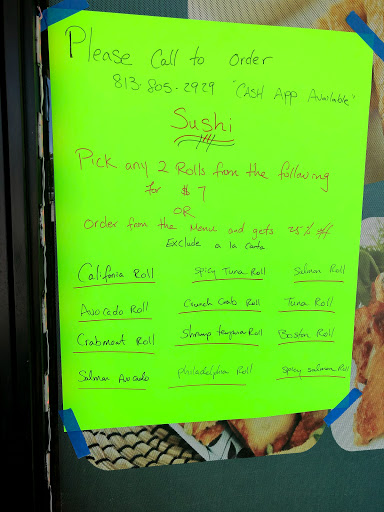 Please Call to Order
813.805.2929 "CASH App Available"
Sushi
Pick any 2 Rolls from the following
for $7
OR
Order from the Menu and gets 25% off.
Exclude a la carta
Califonia Roll
Spicy Tuna Roll
Salmon Roll
Avocado Roll
Crunch Crab Roll
Tuna Roll
Crabmeat Roll
Shrimp tempura Roll
Boston Roll
Salman Avocado
Philadelphia Roll
Spicy salmon Roll